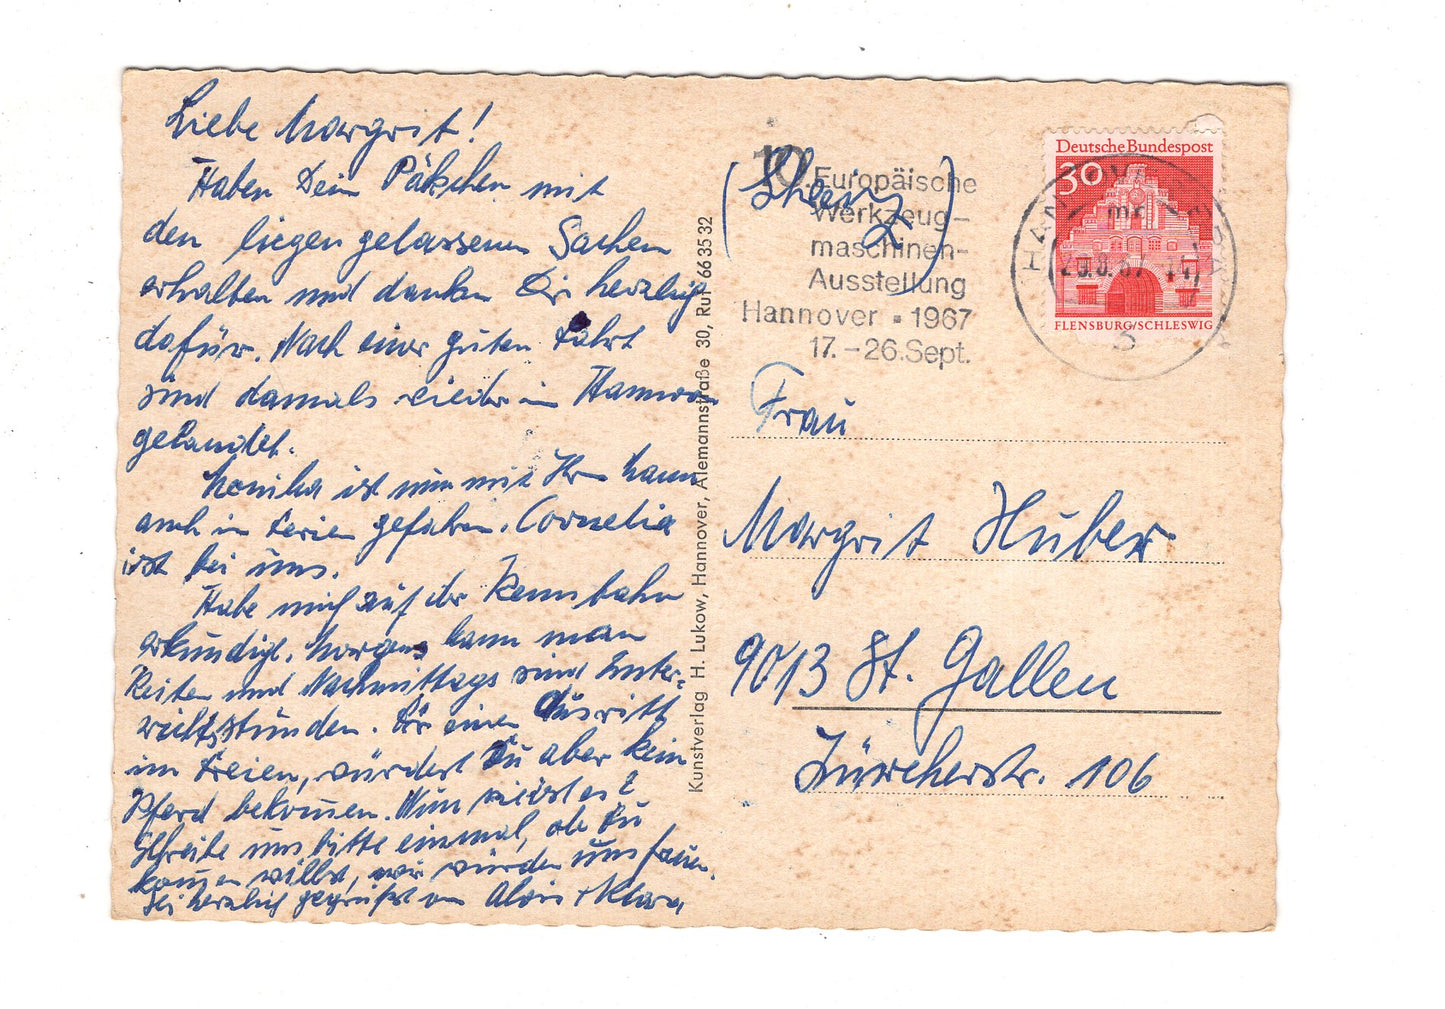 Liebe Margrit!
Haben Dein Päkchen mit
den liegen gelassenen Sachen
erhalten und danken Dir herzlich
dafür. Nach einer guten Fahrt
sind damals wieder in Hannover
gelandet.
Monika ist nun mit Ihrem Mann
auch in Ferien gefahren. Cornelia
ist bei uns.
Habe mich auf der Rennbahn
erkundigt. Morgens kann man
Reiten und Nachmittags sind Unter-
richtsstunden. Für einen Ausritt
im Freien, würdest Du aber kein
Pferd bekommen. Nun wie ist es?
Schreibe uns bitte einmal, ob Du
kommen willst, wir würden uns freuen.
Sei herzlich gegrüßt von Alois + Klara
Kunstverlag H. Lukow, Hannover, Alemannstraße 30, Ruf 66 35 32
10. Europäische
Werkzeug-
maschinen-
Ausstellung
Hannover • 1967
17.-26.Sept.
(Schweiz)
Deutsche Bundespost
30
FLENSBURG/SCHLESWIG
HANNOVER
mr
3
Frau
Margrit Huber
9013 St. Gallen
Zürcherstr. 106